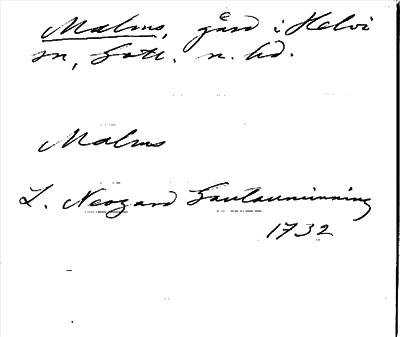 Malms, gård i Helvi
sn, Gotl. n. hd.
Malms
L. Neogard Gautauminning
1732